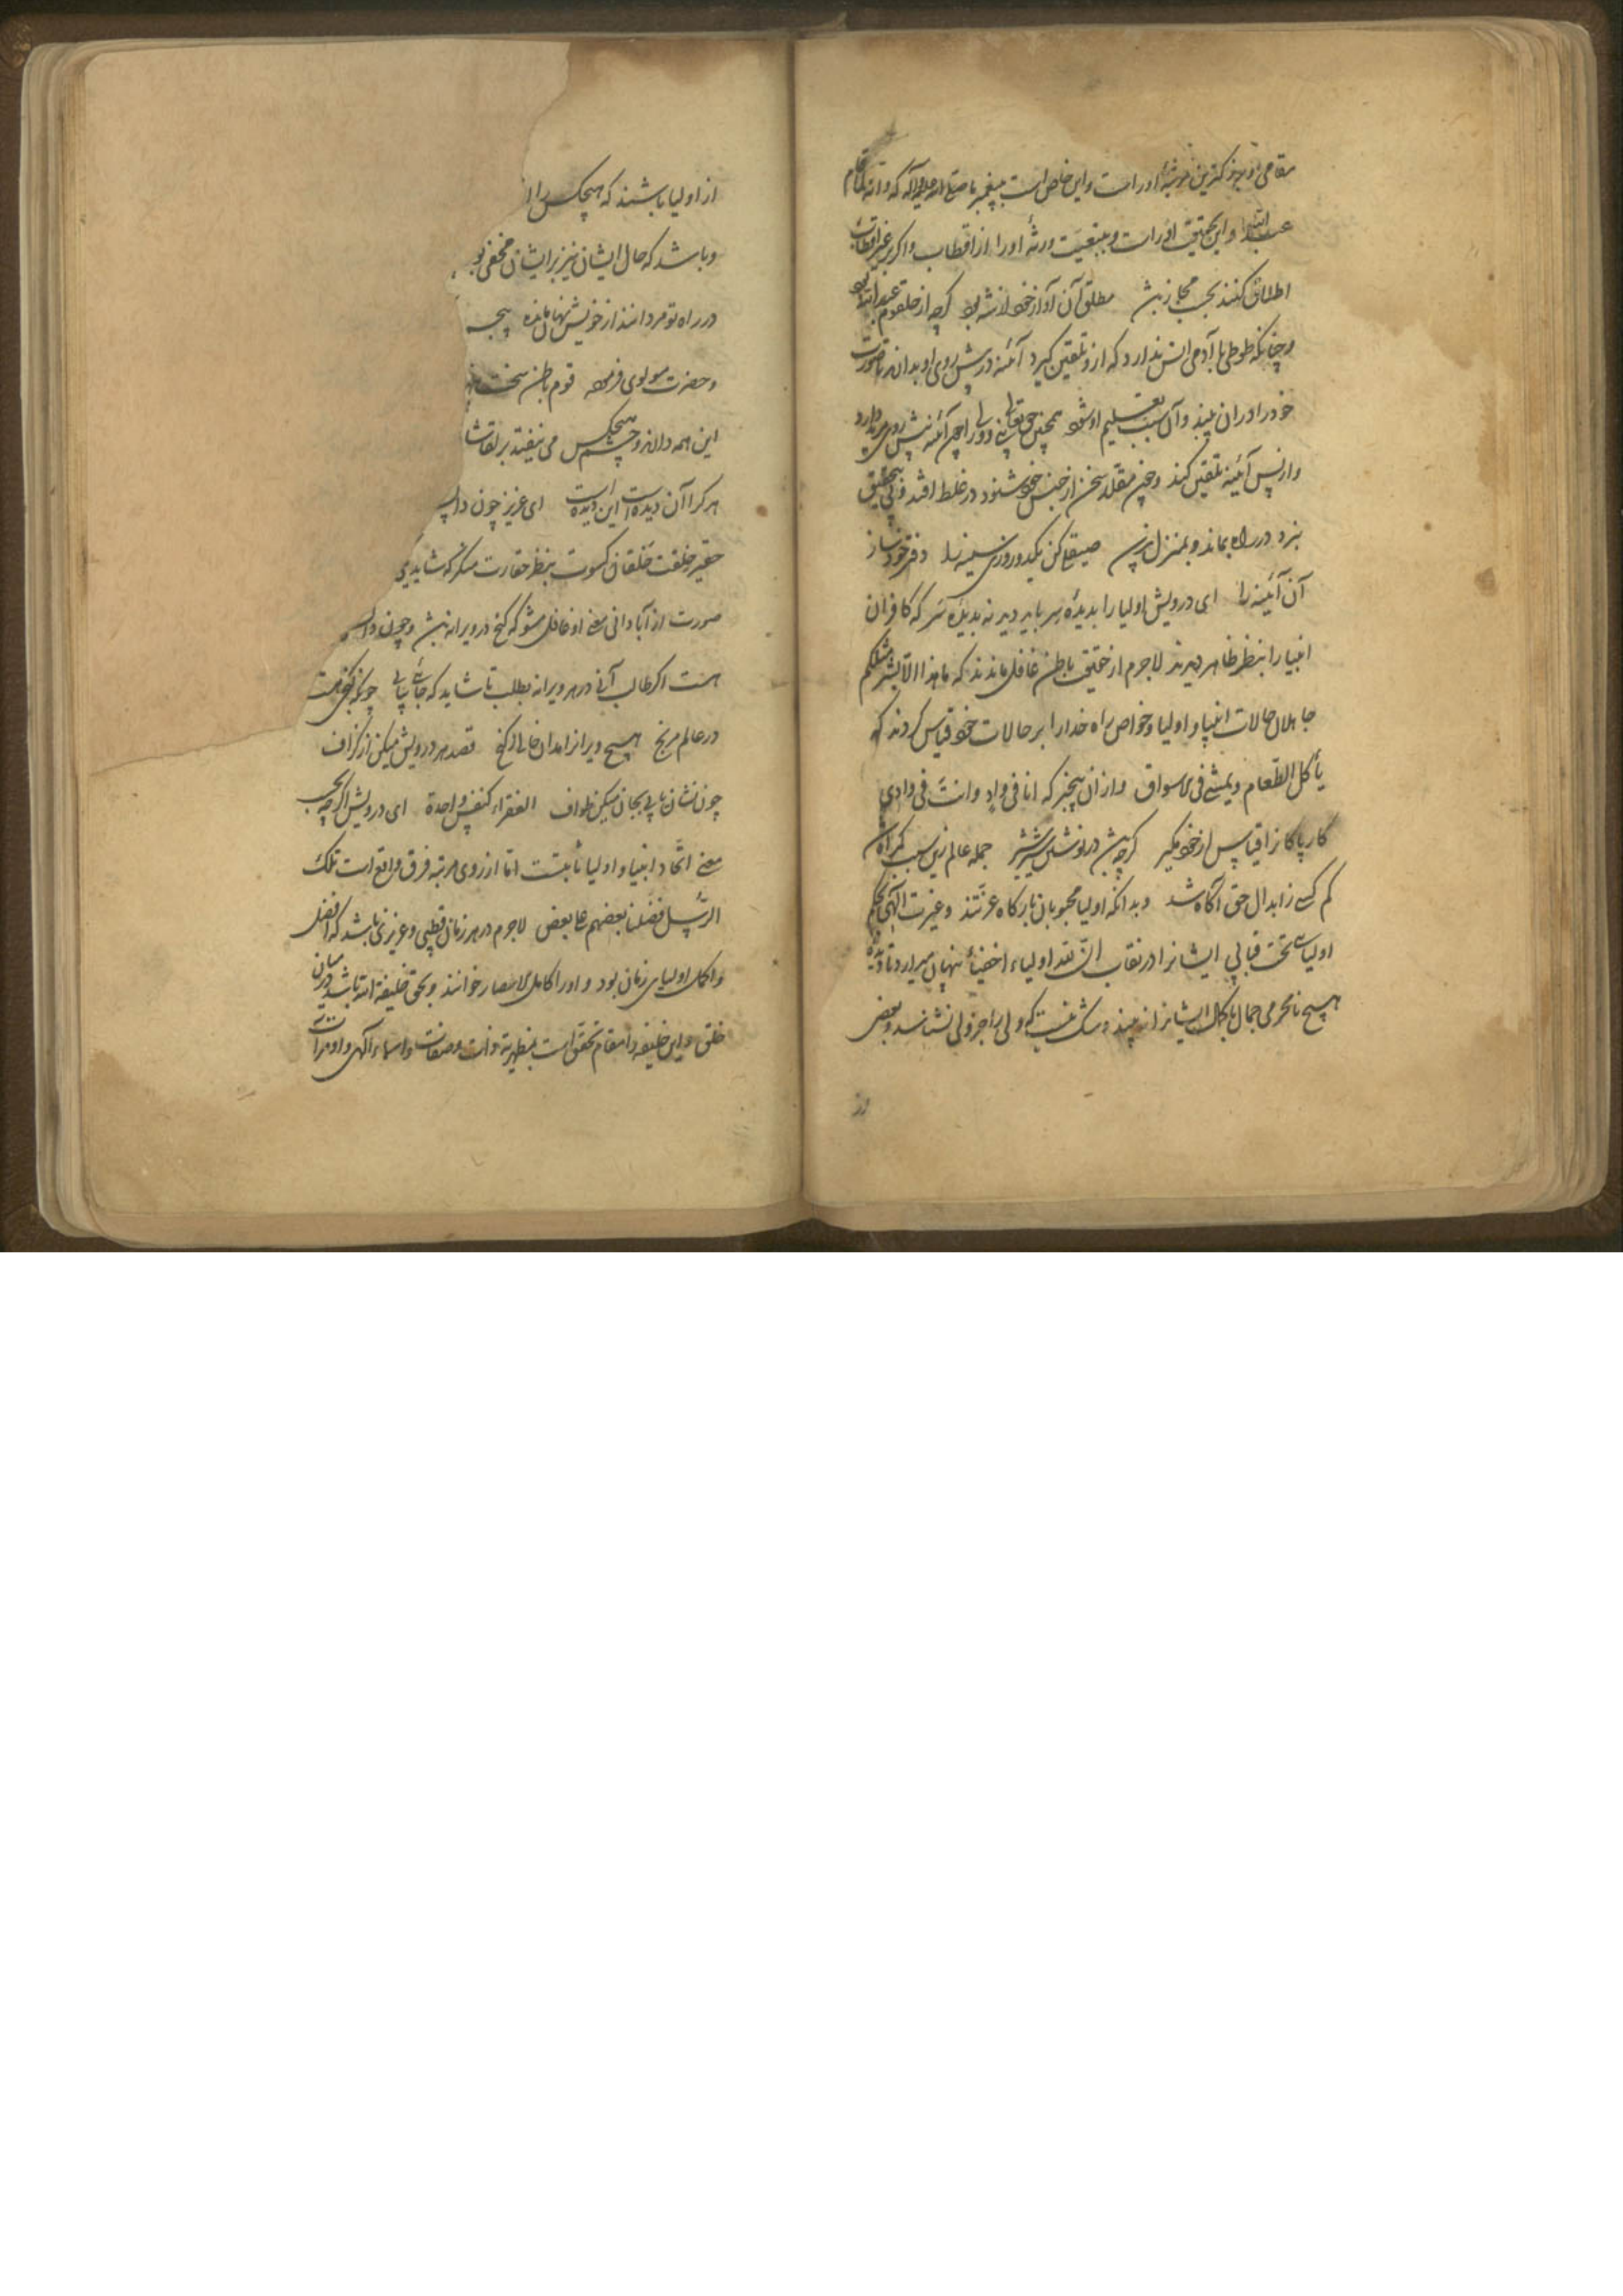 مقامی و نیز کمترین مرتبهٔ اوراست و این خاص است به پیغمبر ما صلی الله علیه و آله که و انه لما قام
عبد الله و این بتحقیق اوراست و بتبعیت ورثهٔ اورا از اقطاب و اگر بر غیر اقطاب
اطلاق کنند بحسب مجاز باشد مطلق آن آواز خود از شه بود گرچه از حلقوم عبد الله بود
و چنانکه طوطی با آدمی انس ندارد که ازو تلقین گیرد آئینه در پیش روی او بدارند تا صورت
خود را در آن بیند و آن سبب تعلیم او شود همچنین حق تعالی نبی و ولی را چون آئینه پیش روی مرید دارد
و از پس آئینه تلقین کند و چون مقلد سخن از جنس خود شنود در غلط افتد و پی بتحقیق
نبرد در راه بماند و بمنزل نرسد صیقلی کن یکدو روزی سینه را دفتر خود ساز
آن آئینه را ای درویش اولیا را بدیدهٔ سر باید دید نه بدیدهٔ سر که کافران
انبیا را بنظر ظاهر دیدند لاجرم از حقیقت باطن غافل ماندند که ما هذا الا بشر مثلکم
جاهلان حالات انبیا و اولیا و خواص راه خدا را بر حالات خود قیاس کردند که
یأکل الطعام و یمشی فی الاسواق و از آن بیخبر که انا فی واد و انت فی وادی
کار پاکانرا قیاس از خود مگیر گرچه باشد در نوشتن شیر شیر جمله عالم زین سبب گمراه شد
کم کسی ز ابدال حق آگاه شد و بدانکه اولیا محبوبان بارگاه عزتند و غیرت الهی بحکم
اولیائی تحت قبابی ایشانرا در نقاب ان لله اولیاء اخفیاء نهان میدارد تا دیدهٔ
هیچ نامحرمی جمال با کمال ایشانرا نه بیند و شک نیست که ولی را جز ولی نشناسد و بعضی
از
از اولیا باشند که هیچکس را
و باشد که حال ایشان نیز بر ایشان مخفی بود
در راه تو مردانند از خویش نهان مانده
و حضرت مولوی فرموده قوم باطن سخت
این همه دارند و چشم هیچکس می نیفتد بر لقاشان
هرکرا آن دیده است این دیده است ای عزیز چون
حقیر خلقت خلقان کسوت بنظر حقارت منگر که شاید
صورت از آبادانی معنی او غافل مشو که گنج در ویرانه باشد و چون
هست اگر طالب آنی در هر ویرانه بطلب تا شاید که جائی بیابی چونکه گنجی هست
در عالم مرنج هیچ ویرانرا مدان خالی ز گنج قصد هر درویش میکن از گزاف
چون نشان یابی بجان میکن طواف الفقراء کنفس واحدة ای درویش اگرچه بحسب
معنی اتحاد انبیا و اولیا ثابتست اما از روی مرتبه فرق واقع است تلک
الرسل فضلنا بعضهم علی بعض لاجرم در هر زمان قطبی و عزیزی باشد که افضل
و اکمل اولیای زمان بود و او را کامل الاعصار خوانند و بحق خلیفة الله باشد در میان
خلق و این خلیفه را مقام تحقق است بمظهریة ذات و صفات و اسماء الهی و اوراست